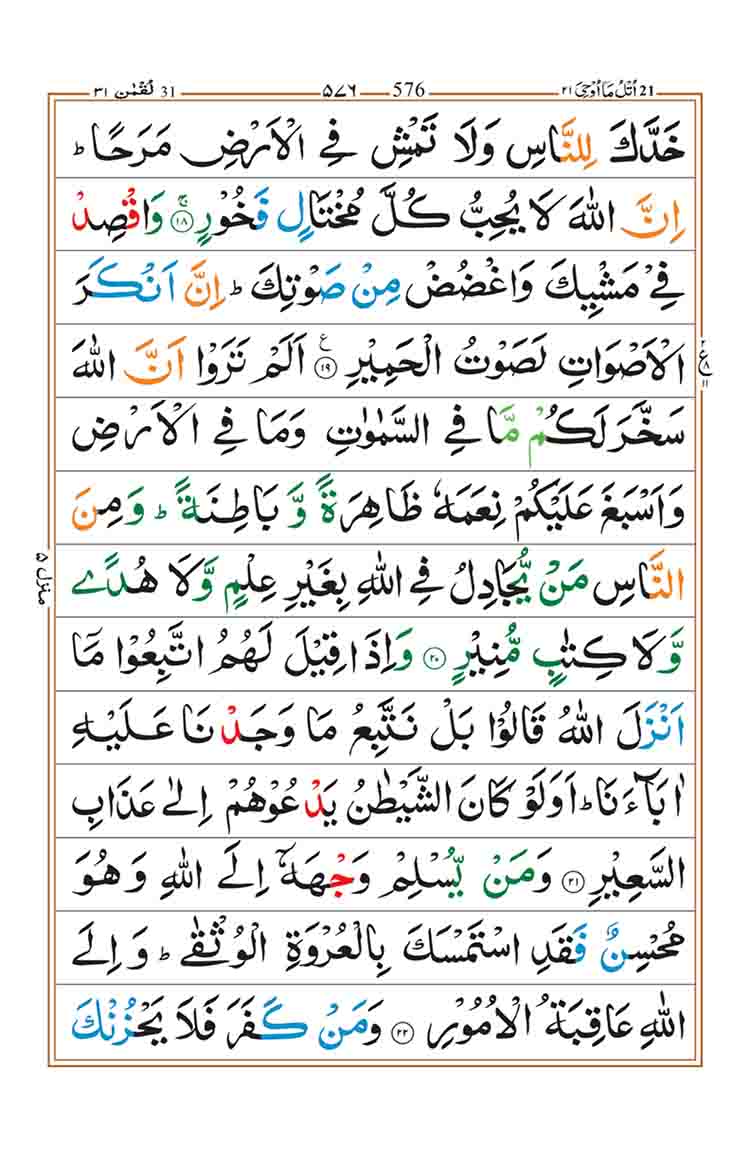 21 اُتْلُ مَاۤ اُوْحِیَ ۲۱ 576 ۵۷۶ 31 لُقْمٰن ۳۱
خَدَّكَ لِلنَّاسِ وَلَا تَمْشِ فِی الْاَرْضِ مَرَحًا ؕ
اِنَّ اللّٰهَ لَا یُحِبُّ كُلَّ مُخْتَالٍ فَخُوْرٍ ۚ ﴿۱۸﴾ وَاقْصِدْ
فِیْ مَشْیِكَ وَاغْضُضْ مِنْ صَوْتِكَ ؕ اِنَّ اَنْكَرَ
الْاَصْوَاتِ لَصَوْتُ الْحَمِیْرِ ﴿۱۹﴾ ع اَلَمْ تَرَوْا اَنَّ اللّٰهَ
سَخَّرَ لَكُمْ مَّا فِی السَّمٰوٰتِ وَمَا فِی الْاَرْضِ
وَاَسْبَغَ عَلَیْكُمْ نِعَمَهٗ ظَاهِرَةً وَّ بَاطِنَةً ؕ وَمِنَ
النَّاسِ مَنْ یُّجَادِلُ فِی اللّٰهِ بِغَیْرِ عِلْمٍ وَّلَا هُدًی
وَّلَا كِتٰبٍ مُّنِیْرٍ ﴿۲۰﴾ وَاِذَا قِیْلَ لَهُمُ اتَّبِعُوْا مَاۤ
اَنْزَلَ اللّٰهُ قَالُوْا بَلْ نَتَّبِعُ مَا وَجَدْنَا عَلَیْهِ
اٰبَآءَنَا ؕ اَوَلَوْ كَانَ الشَّیْطٰنُ یَدْعُوْهُمْ اِلٰی عَذَابِ
السَّعِیْرِ ﴿۲۱﴾ وَمَنْ یُّسْلِمْ وَجْهَهٗۤ اِلَی اللّٰهِ وَهُوَ
مُحْسِنٌ فَقَدِ اسْتَمْسَكَ بِالْعُرْوَةِ الْوُثْقٰی ؕ وَاِلَی
اللّٰهِ عَاقِبَةُ الْاُمُوْرِ ﴿۲۲﴾ وَمَنْ كَفَرَ فَلَا یَحْزُنْكَ
منزل ۵